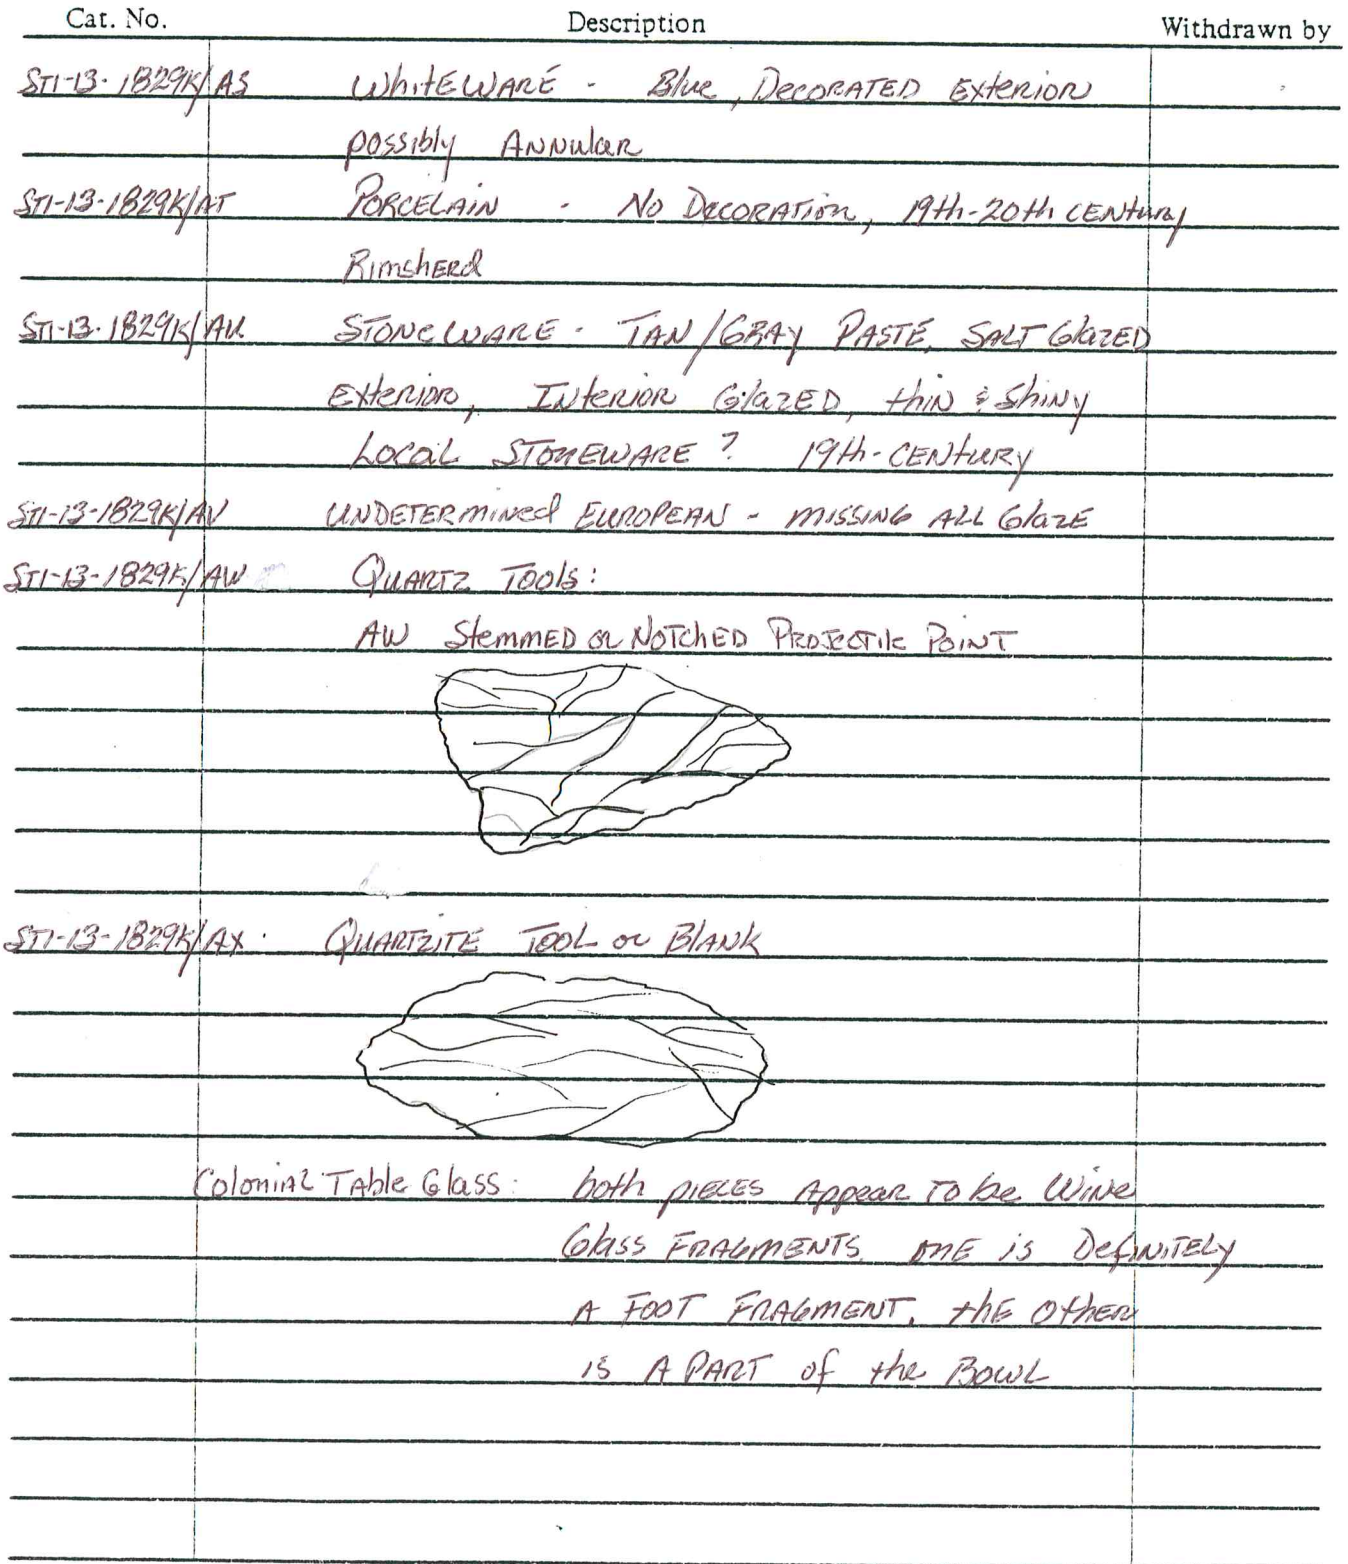 Cat. No. Description Withdrawn by
ST1-13-1829K/AS WhiteWARE - Blue, DECORATED Exterior
possibly ANNular
ST1-13-1829K/AT PORCELAIN - No DECORATION, 19th-20th CENtury
RimshERd
ST1-13-1829K/AU STONEWARE - TAN/GRAY PASTE, SALT GlaZED
Exterior, INterior GlaZED, thiN & ShiNy
LOCAL STONEWARE? 19th-CENTURY
ST1-13-1829K/AV UNDETERmiNed EUROPEAN - missiNG ALL GlaZE
ST1-13-1829K/AW QUARTZ Tools:
AW StemmED OR NOTChED PROJECTilE POiNT
ST1-13-1829K/AX. QUARTZITE TOOL or BLANK
ColoniAl Table Glass: both piECES AppEAR To be WiNe
Glass FRAGMENTS. ONE is DefiNiTELy
A FOOT FRAGMENT, thE OthER
is A PART of the BOWL